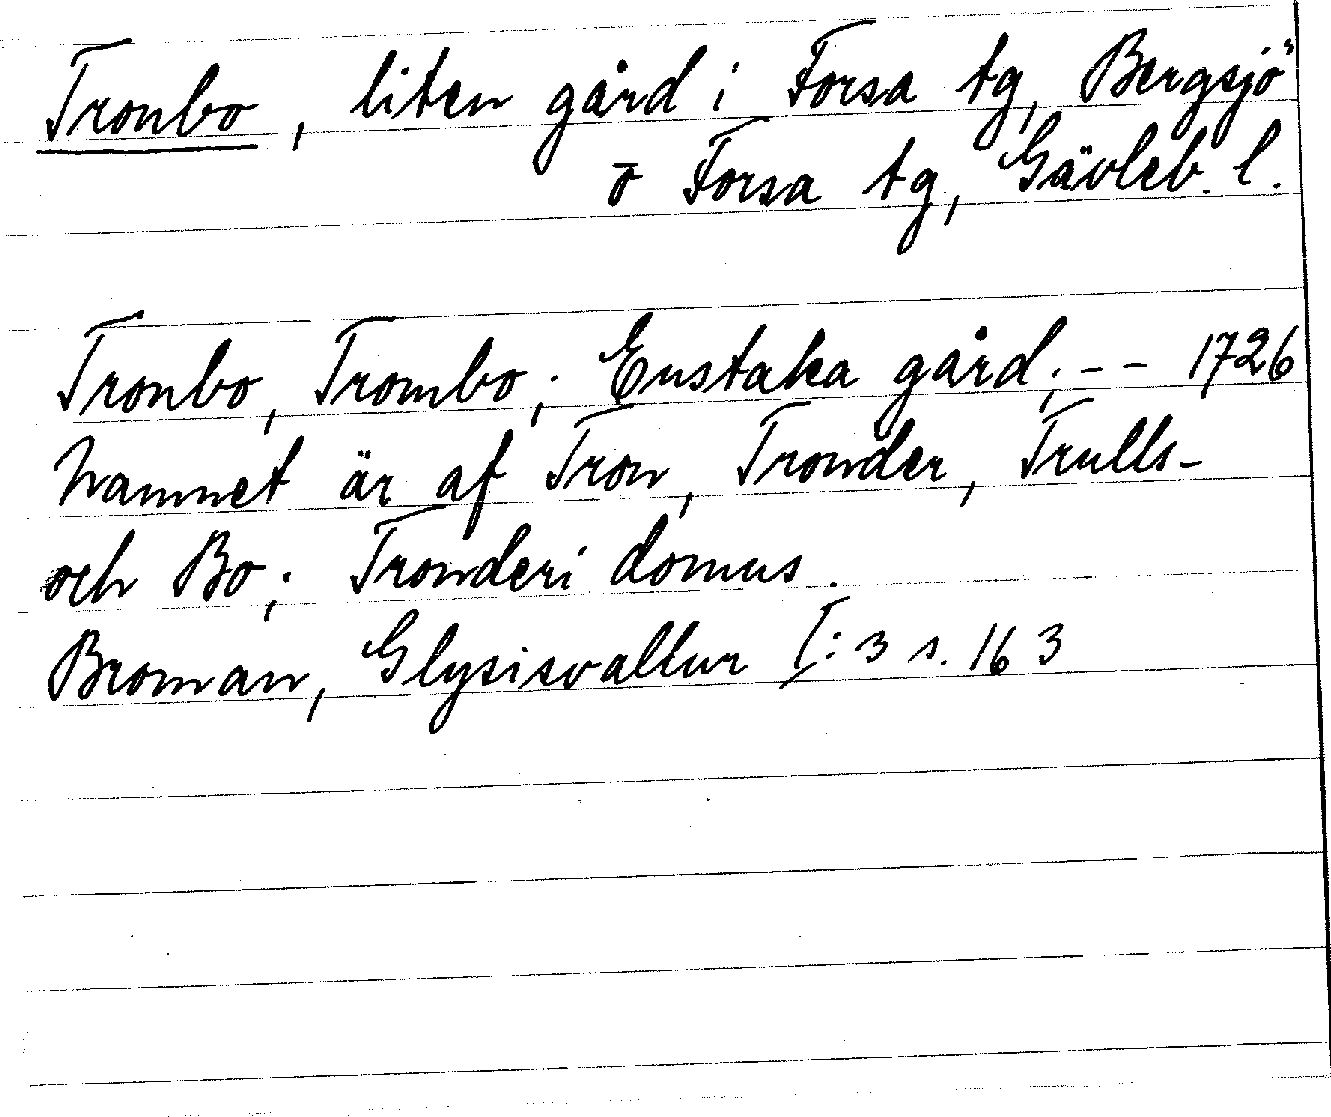 Tronbo, liten gård i Forsa tg, Bergsjö
o Forsa tg, Gävleb. l.
Tronbo, Trombo; Enstaka gård; -- 1726
hamnet är af Tron, Tronder, Trulls-
och Bo; Tronderi domus.
Broman, Glysisvallur I:3 s. 163